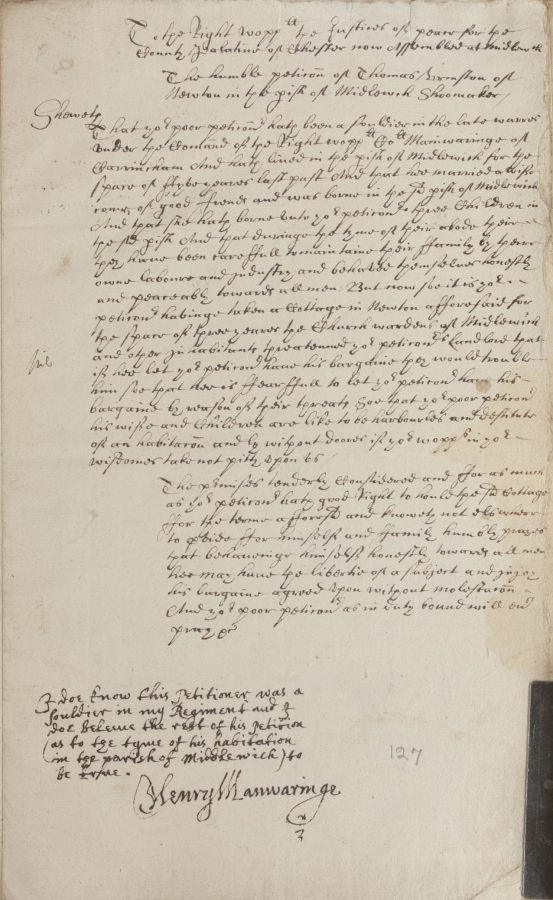 To the Right wopp:ll the Justices of peace for the
County Palatine of Chester now Assembled at midlewch
The humble peticōn of Thomas Burnston of
Newton in the pish of Midlewch Shoomaker
Sheweth
That yor: poor peticonr hath been a souldier in the late warres
under the Comand of the Right wopp:ll Coll: Manwaringe of
Carrincham And hath lived in the pish of Midlewich for the
space of ffyve yeares last past And that hee married a wife
come of good ffrends and was borne in the sd pish of Midlewich
And that shee hath borne unto yor peticonr three Children in
the sd pish And that dureinge the tyme of their abode theire
they have been carefull to maintaine their ffamily by theire
owne laboure and industry and behaved themselves honestly
and peaceably towards all men. But now soe it is yor:
peticonr haveinge taken a Cottage in Newton afforesaid for
the space of three yeares the Church wardens of Midlewich
and other Inhabitants threatened yor peticonrs landlord that
if hee let yor peticonr have his bargaine they would trouble
him soe that hee is ffearffull to let yor peticonr have his
bargaine by reason of their threats Soe that yor poor peticonr
his wiffe and Children are like to be harbourles and destitute
of an habitacōn and ly without doores if yor: wopps: in yor:
wisedomes take not pitty upon us
The premisses tenderly Considered and ffor as much
as yor peticonr hath good Right to hould the sd Cottage
ffor the terme afforesd and knoweth not elswhere
to pvide ffor himselfe and ffamily humbly prayes
that behaveinge himselfe honestly towards all men
hee may have the libertie of a subject and injoy
his bargaine agreed upon without molestacōn
And yor: poor peticonr as in duty bound will ever
pray &c
I doe know this Petitioner was a
souldier in my Regiment and I
doe beleeve the rest of his Petition
(as to the tyme of his habitation
in the parish of Middlewich) to
be true.
Henry Manwaringe
127